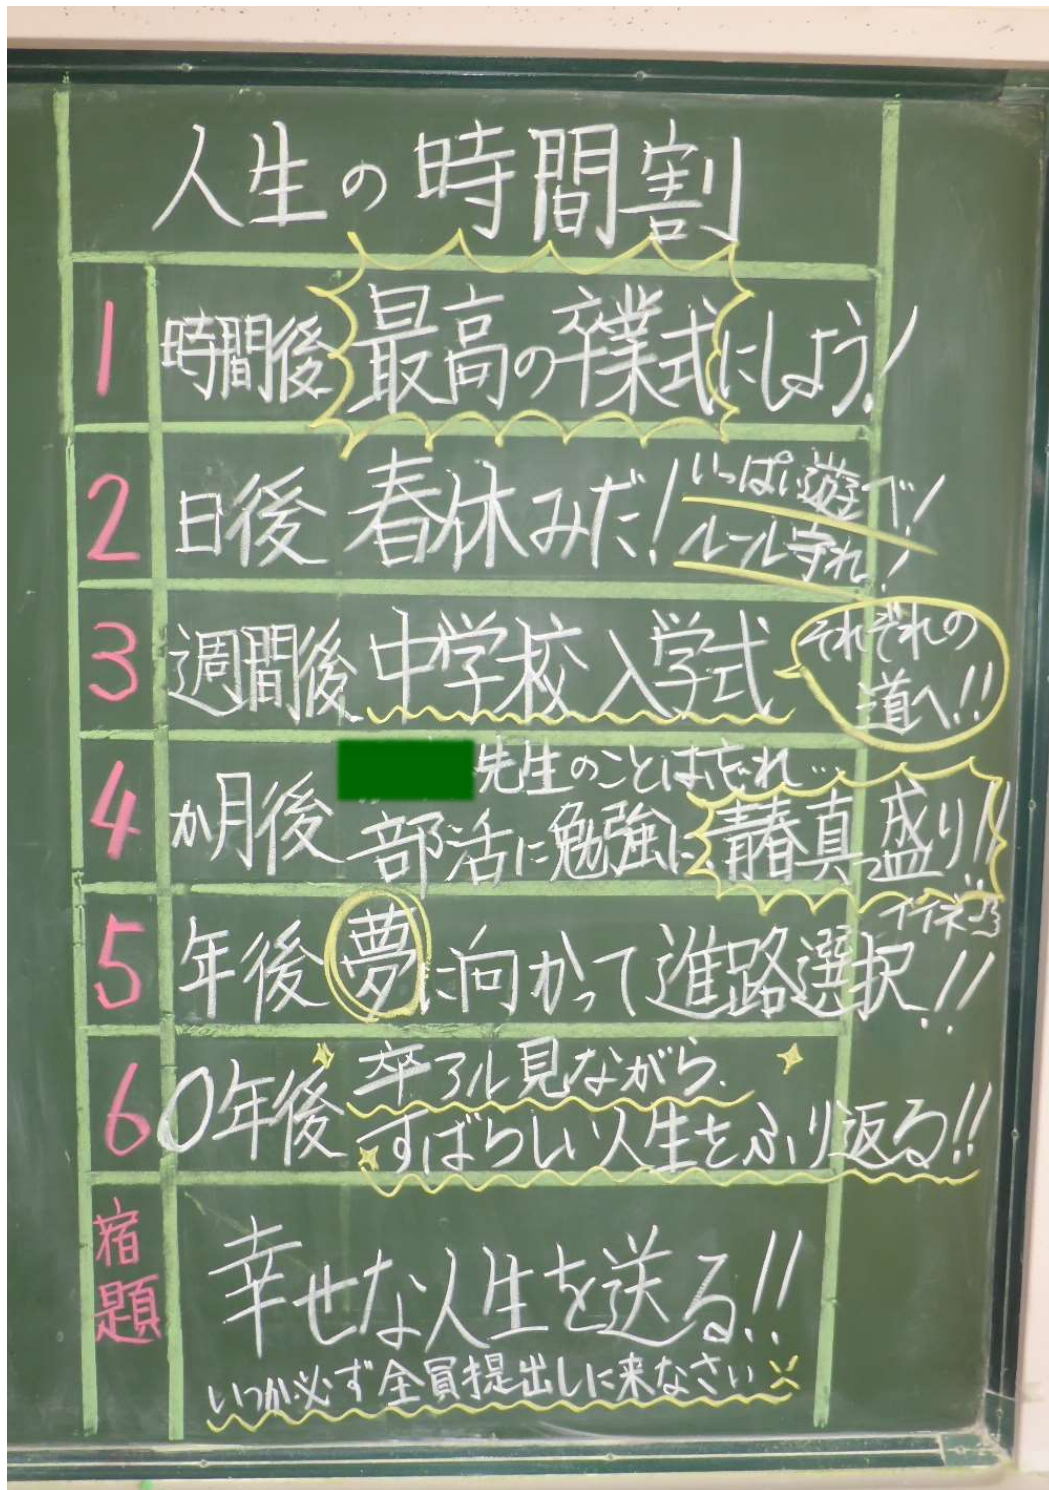 人生の時間割
1 時間後 最高の卒業式にしよう!
2 日後 春休みだ! いっぱい遊べ!
ルール守れ!
3 週間後 中学校入学式 それぞれの
道へ!!
4 か月後 先生のことは忘れ…
部活に勉強に青春真っ盛り!!
イイネ
5 年後 夢に向かって進路選択!!
6 0年後 卒アル見ながら、
すばらしい人生をふり返る!!
宿題 幸せな人生を送る!!
いつか必ず全員提出しに来なさい